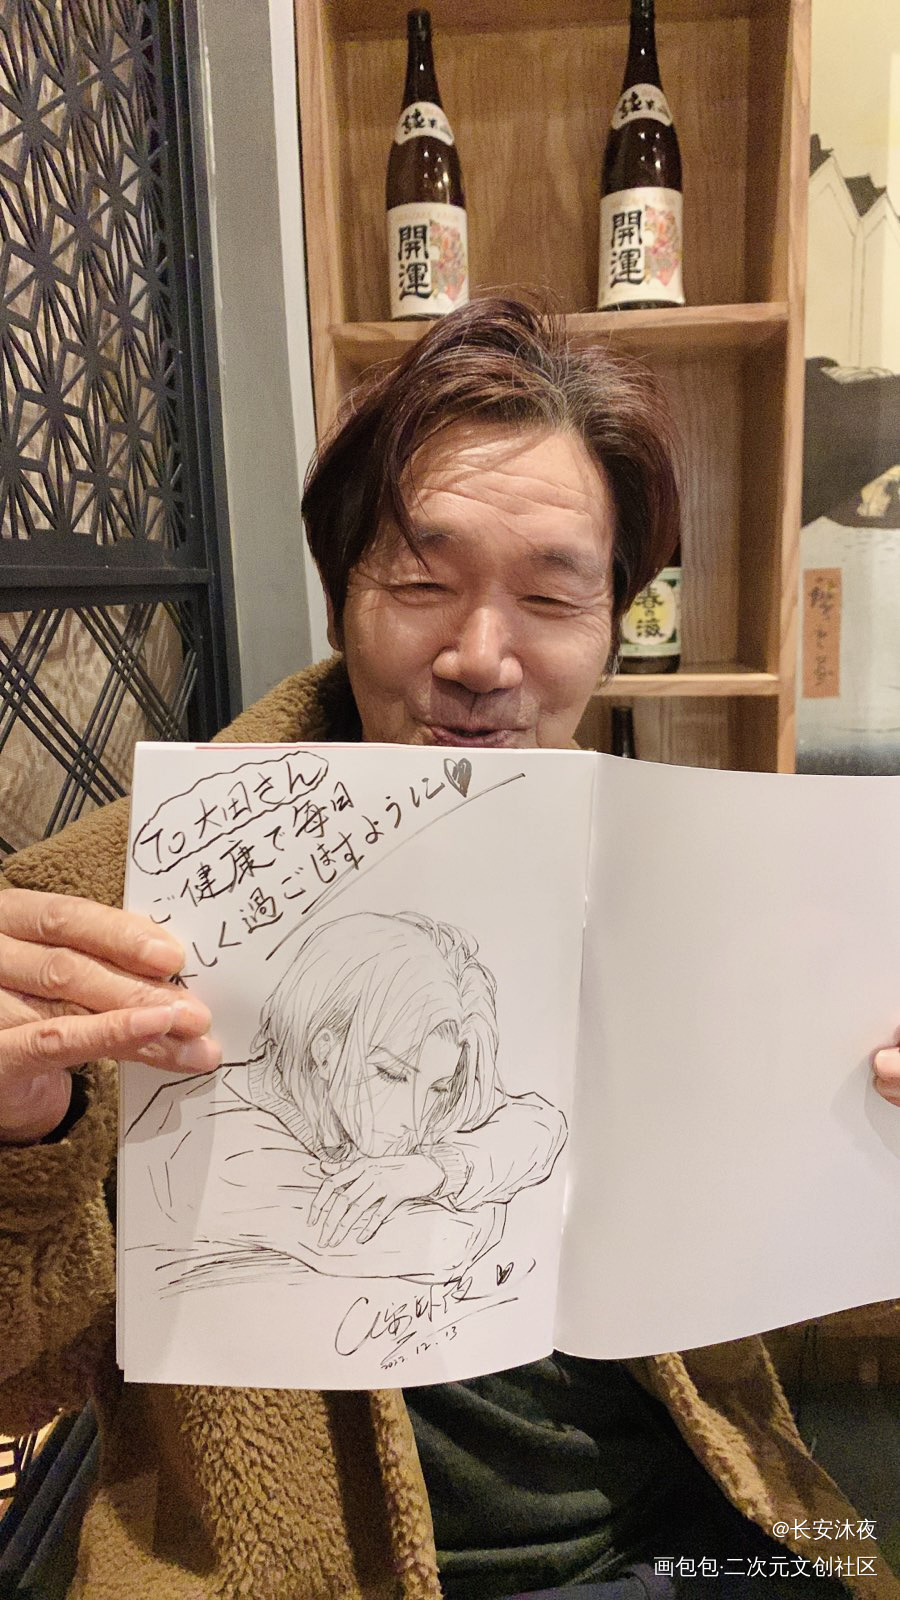 純米
開運
純米
開運
春の海
To 大田さん
ご健康で毎日
しく過ごせますように♡
2022.12.13
@长安沐夜
画包包·二次元文创社区